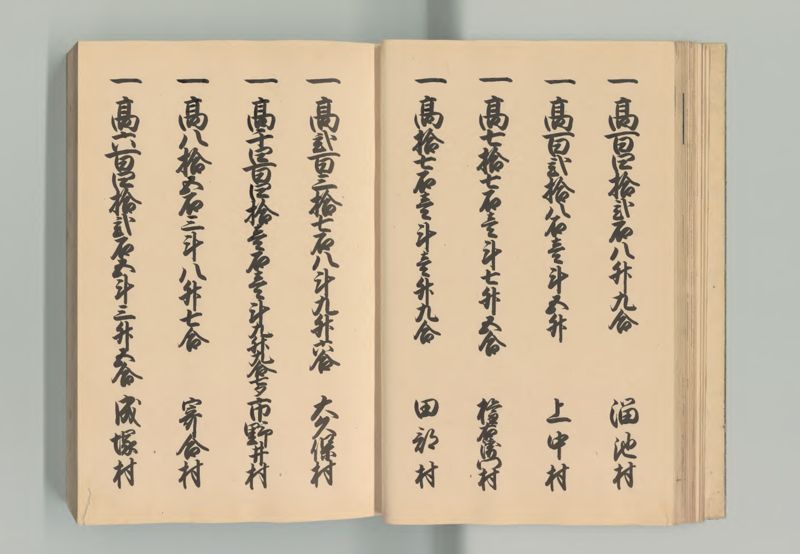 一 高百四拾弐石八升九合 溜池村
一 高百弐拾八石壱斗五升 上中村
一 高七拾七石壱斗七升五合 権右衛門村
一 高拾七石壱斗壱升九合 田部村
一 高弐百三拾七石八斗九升六合 大久保村
一 高千四百四拾壱石壱斗九升九合 市野井村
一 高八拾五石三斗八升七合 寄合村
一 高六百四拾弐石五斗三升五合 成塚村